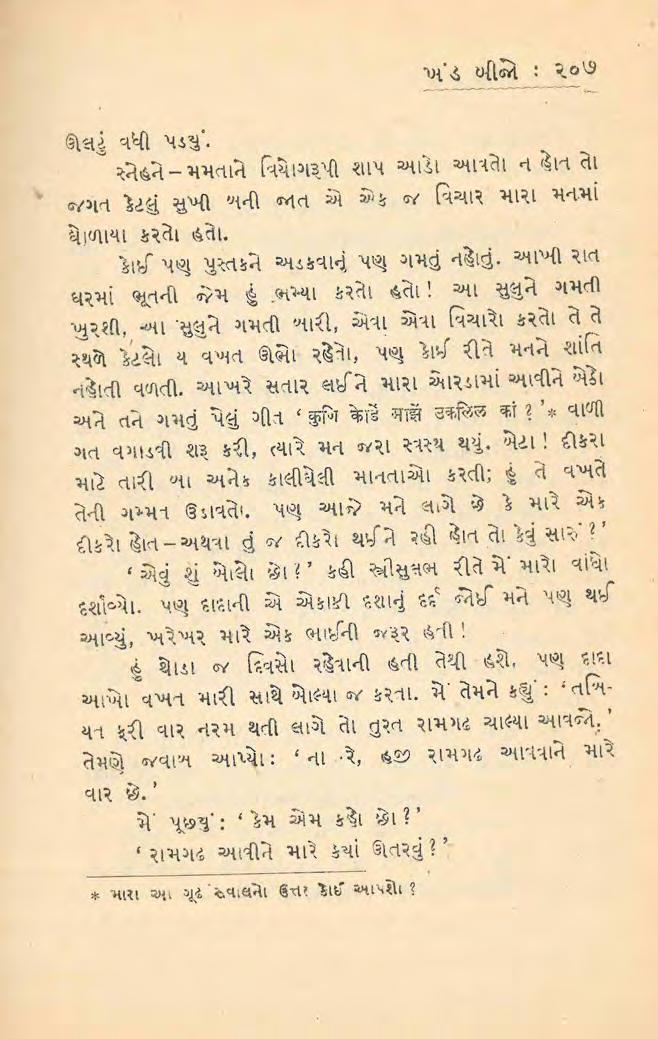 ખંડ બીજો : ૨૦૭
ઊલટું વધી પડયું.
સ્નેહને – મમતાને વિયોગરૂપી શાપ આડો આવતો ન હોત તો
જગત કેટલું સુખી બની જાત એ એક જ વિચાર મારા મનમાં
ઘોળાયા કરતો હતો.
કોઈ પણ પુસ્તકને અડકવાનું પણ ગમતું નહોતું. આખી રાત
ઘરમાં ભૂતની જેમ હું ભમ્યા કરતો હતો! આ સુલુને ગમતી
ખુરશી, આ સુલુને ગમતી બારી, એવા એવા વિચારો કરતો તે તે
સ્થળે કેટલો ય વખત ઊભો રહેતો, પણ કોઈ રીતે મનને શાંતિ
નહોતી વળતી. આખરે સતાર લઈને મારા ઓરડામાં આવીને બેઠો
અને તને ગમતું પેલું ગીત ‘ कुणि कोडें माझें उकलिल कां ? ’* વાળી
ગત વગાડવી શરૂ કરી, ત્યારે મન જરા સ્વસ્થ થયું. બેટા! દીકરા
માટે તારી બા અનેક કાલીઘેલી માનતાઓ કરતી; હું તે વખતે
તેની ગમ્મત ઉડાવતો. પણ આજે મને લાગે છે કે મારે એક
દીકરો હોત – અથવા તું જ દીકરો થઈને રહી હોત તો કેવું સારું ?’
‘ એવું શું બોલો છો ? ’ કહી સ્ત્રીસુલભ રીતે મેં મારો વાંધો
દર્શાવ્યો. પણ દાદાની એ એકાકી દશાનું દર્દ જોઈ મને પણ થઈ
આવ્યું, ખરેખર મારે એક ભાઈની જરૂર હતી !
હું થોડા જ દિવસો રહેવાની હતી તેથી હશે, પણ દાદા
આખો વખત મારી સાથે બોલ્યા જ કરતા. મેં તેમને કહ્યું : ‘ તબિ-
યત ફરી વાર નરમ થતી લાગે તો તુરત રામગઢ ચાલ્યા આવજો. ’
તેમણે જવાબ આપ્યો : ‘ ના રે, હજી રામગઢ આવવાને મારે
વાર છે. ’
મેં પૂછયું : ‘ કેમ એમ કહો છો ? ’
‘ રામગઢ આવીને મારે કયાં ઊતરવું ? ’
* મારા આ ગૂઢ સવાલનો ઉત્તર કોઈ આપશો ?